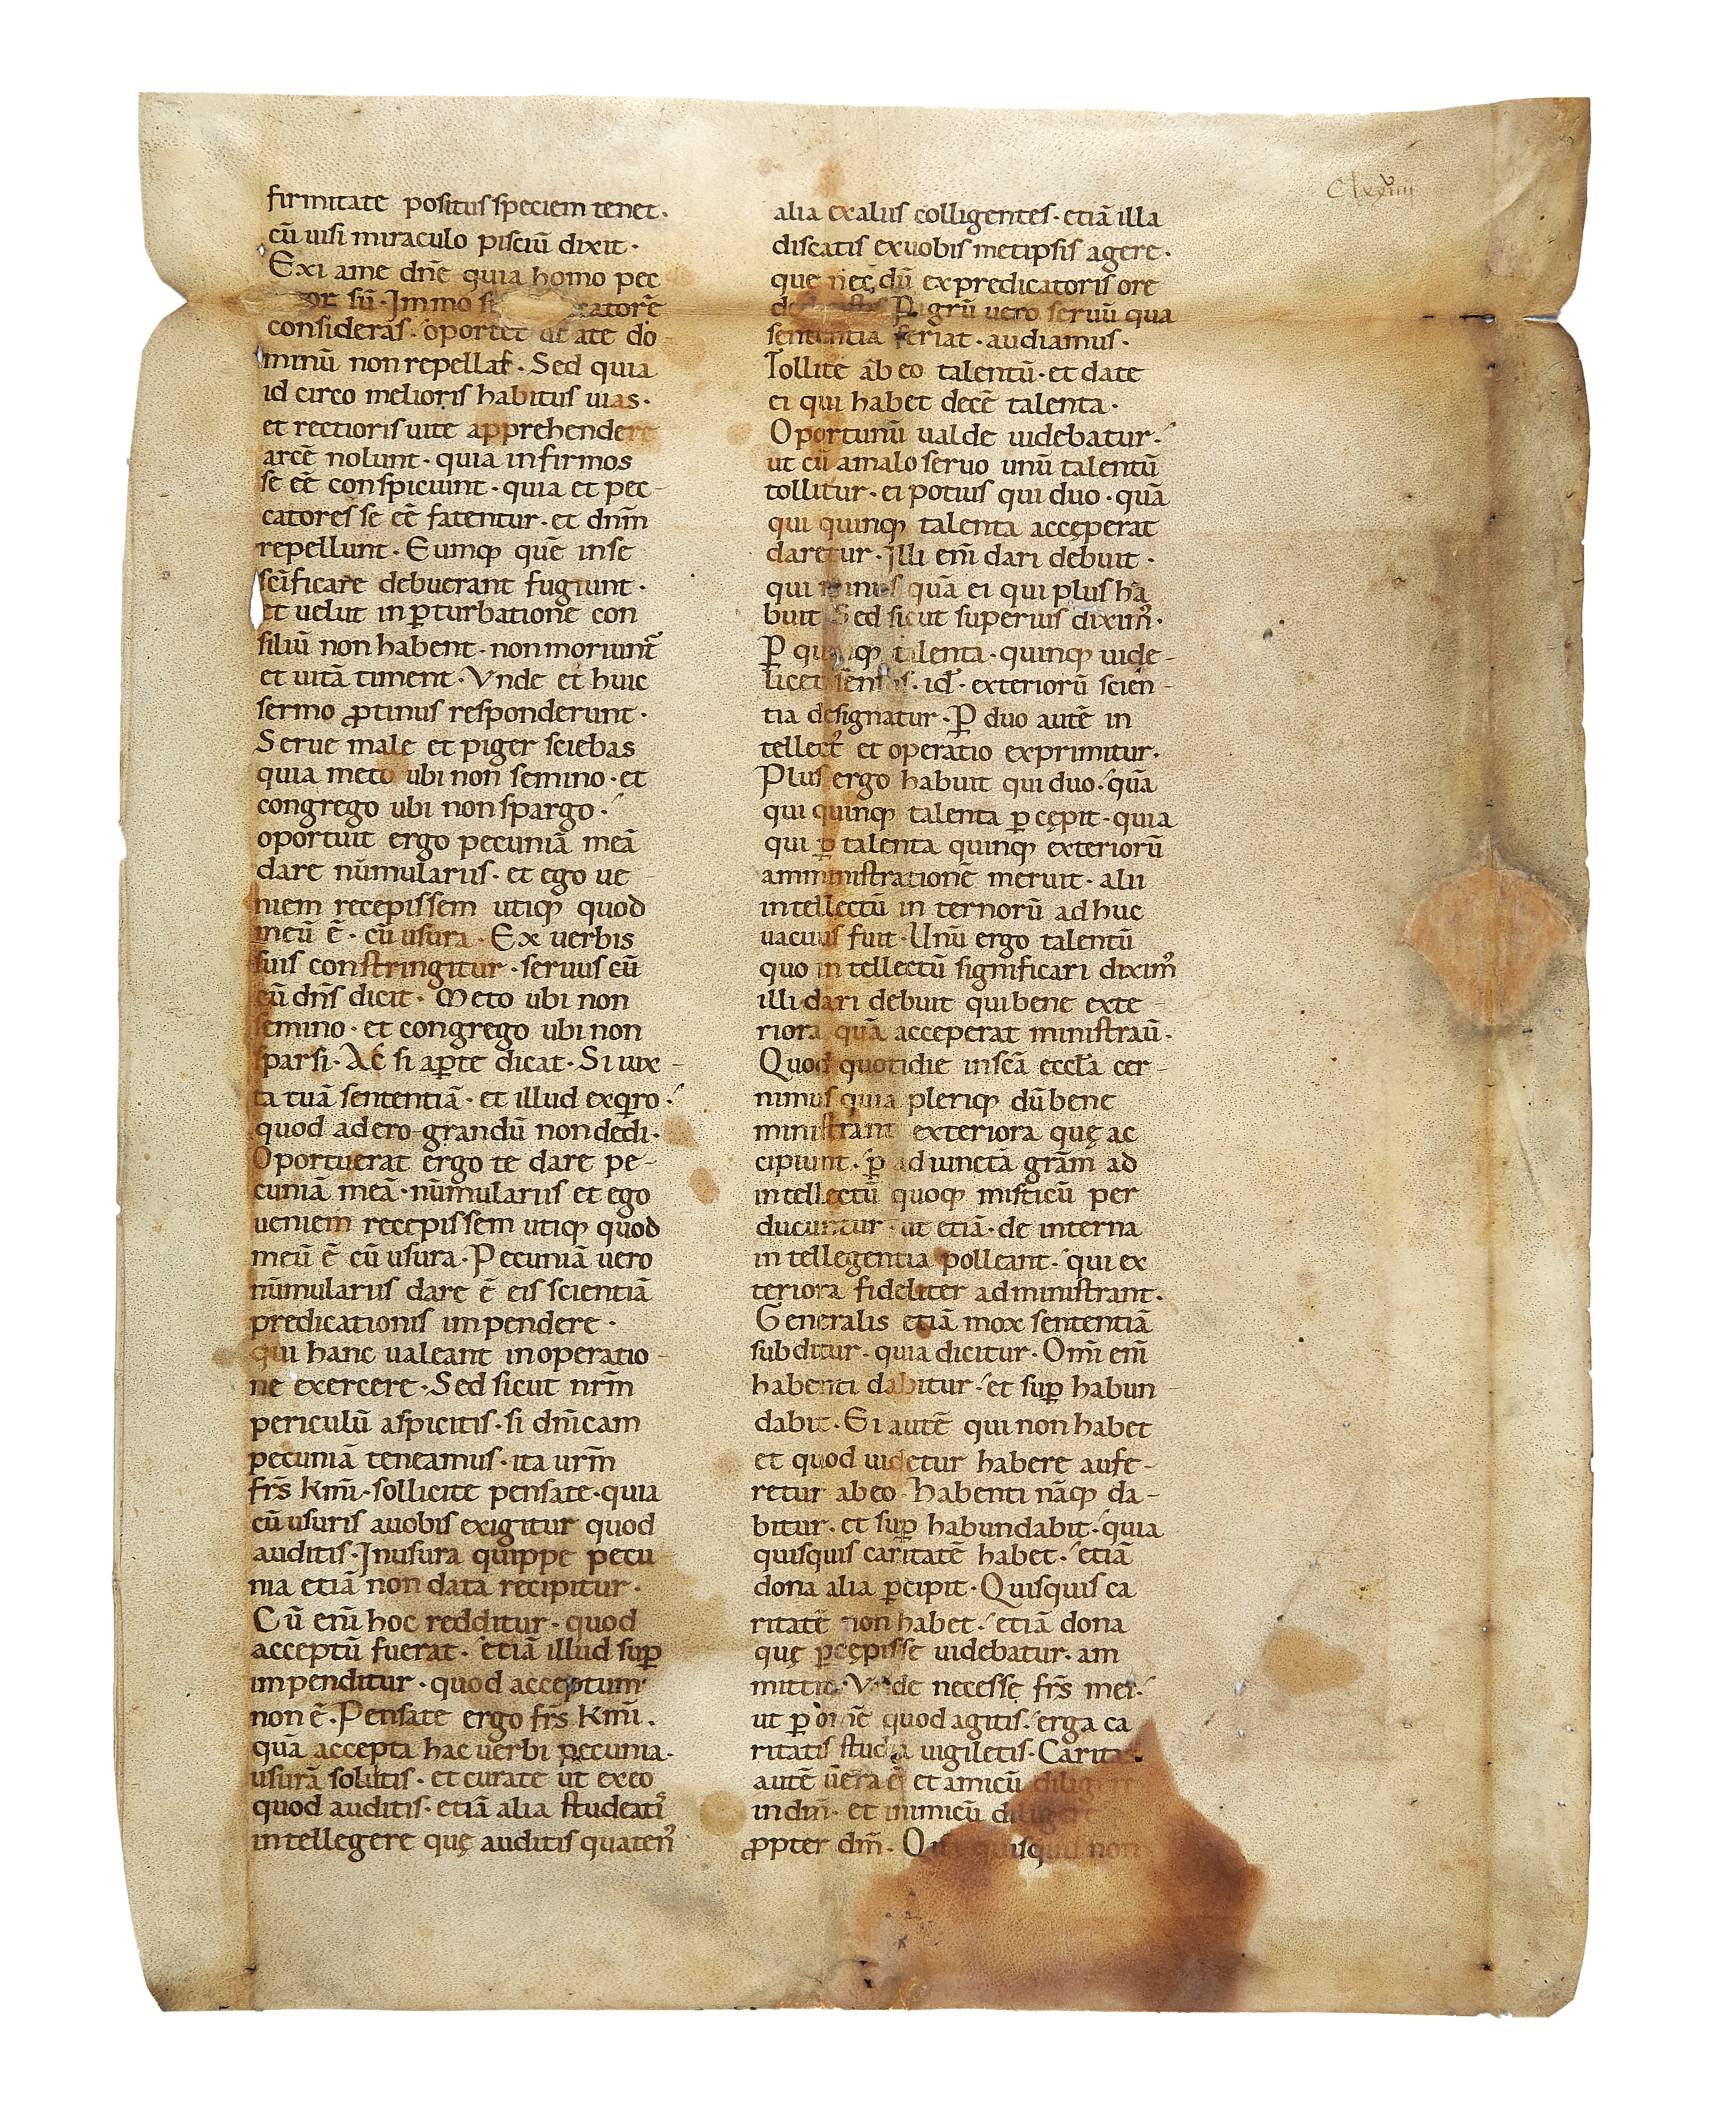 Clxxiiii
firmitate positus speciem tenet·
cū uisi miraculo pisciū dixit·
Exi ame dn̄e quia homo pec
sū· Immo catorē
consideras· oportet ate do
minū non repellas· Sed quia
id circo melioris habitus uias·
et rectioris uite apprehendere
arcē nolunt· quia infirmos
se eē conspiciunt· quia et pec-
catores se eē fatentur· et dn̄m
repellunt· Eumqꝫ quē inse
sc̄ificare debuerant fugiunt·
et uelut in ꝑturbatione con
siliū non habent· non moriunt̄
et uitā timent· Vnde et huic
sermo ꝓtinus responderunt·
Serue male et piger sciebas
quia meto ubi non semino· et
congrego ubi non spargo·
oportuit ergo pecuniā meā
dare nūmulariis· et ego ue
niem recepissem utiqꝫ quod
meū ē· cū usura· Ex uerbis
suis constringitur· seruus cū
cū dn̄s dicit· Meto ubi non
semino· et congrego ubi non
sparsi· Ac si aꝑte dicat· Si iux-
ta tuā sententiā· et illud exqiro·
quod ad ero grandū non dedi·
Oportuerat ergo te dare pe-
cuniā meā· nūmulariis et ego
ueniem recepissem utiqꝫ quod
meū ē cū usura· Pecuniā uero
nūmulariis dare ē eis scientiā
predicationis impendere·
qui hanc ualeant in operatio-
ne exercere· Sed sicut nr̄m
periculū aspicitis· si dn̄icam
pecuniā teneamus· ita ur̄m
fr̄s km̄i· sollicite pensate· quia
cū usuris auobis exigitur quod
auditis· In usura quippe pecu
nia etiā non data recipitur·
Cū eni̅ hoc redditur· quod
acceptū fuerat· etiā illud suꝑ
impenditur· quod acceptum
non ē· Pensate ergo fr̄s km̄i·
quā accepta hac uerbi pecunia·
usurā solutis· et curate ut exeo
quod auditis· etiā alia studeatis
intellegere quę auditis quaten᾿
alia exaliis colligentes· etiā illa
discatis exuobis metipsis agere·
que nec dū expredicatoris ore
Pigrū uero seruū qua
sententia feriat· audiamus·
Tollite ab eo talentū· et date
ei qui habet decē talenta·
Oportunū ualde uidebatur·
ut cū amalo seruo unū talentū
tollitur· ei potius qui duo· quā
qui quinqꝫ talenta accęperat
daretur· Illi em̄ dari debuit·
qui minus quā ei qui plus ha
buit Sed sicut superius dixim᾿·
P quinqꝫ talenta· quinqꝫ uide-
licet sensus· id· exteriorū scien-
tia designatur· P duo autē in
tellect᾿ et operatio exprimitur·
Plus ergo habuit qui duo· quā
qui quinqꝫ talenta ꝑcępit· quia
qui ꝑ talenta quinqꝫ exteriorū
amministrationē meruit· ab
intellectū in ternorū ad huc
uacuus fuit· Unū ergo talentū
quo in tellectū significari dixim᾿
illi dari debuit qui bene exte-
riora quā acceperat ministrau̅·
Quod quotidie in sc̄ā eccl̄a cer-
nimus quia pleriqꝫ dū bene
ministrant exteriora quę ac
cipiunt· ꝑ ad iunctā grām ad
intellectū quoqꝫ misticū per
ducuntur· ut etiā· de interna
in tellegentia polleant· qui ex
teriora fideliter administrant·
Generalis etiā mox sententiā
subditur· quia dicitur· Omī em̄
habenti dabitur· et suꝑ habun
dabit· Ei autē qui non habet
et quod uidetur habere aufe-
retur abeo· habenti nāqꝫ da-
bitur· et suꝑ habundabit· quia
quisquis caritatē habet· etiā
dona alia ꝑcipit· Quisquis ca
ritatē non habet· etiā dona
quę ꝑcępisse uidebatur· am
mittit· Vnde necesse fr̄s mei·
ut ꝑ omnē quod agitis· erga ca
ritatis studia uigiletis· Caritas
autē uera ē et amicū diligere
in dn̄· et inimicū diligere
ꝓpter dm̄· Quā quisquis non